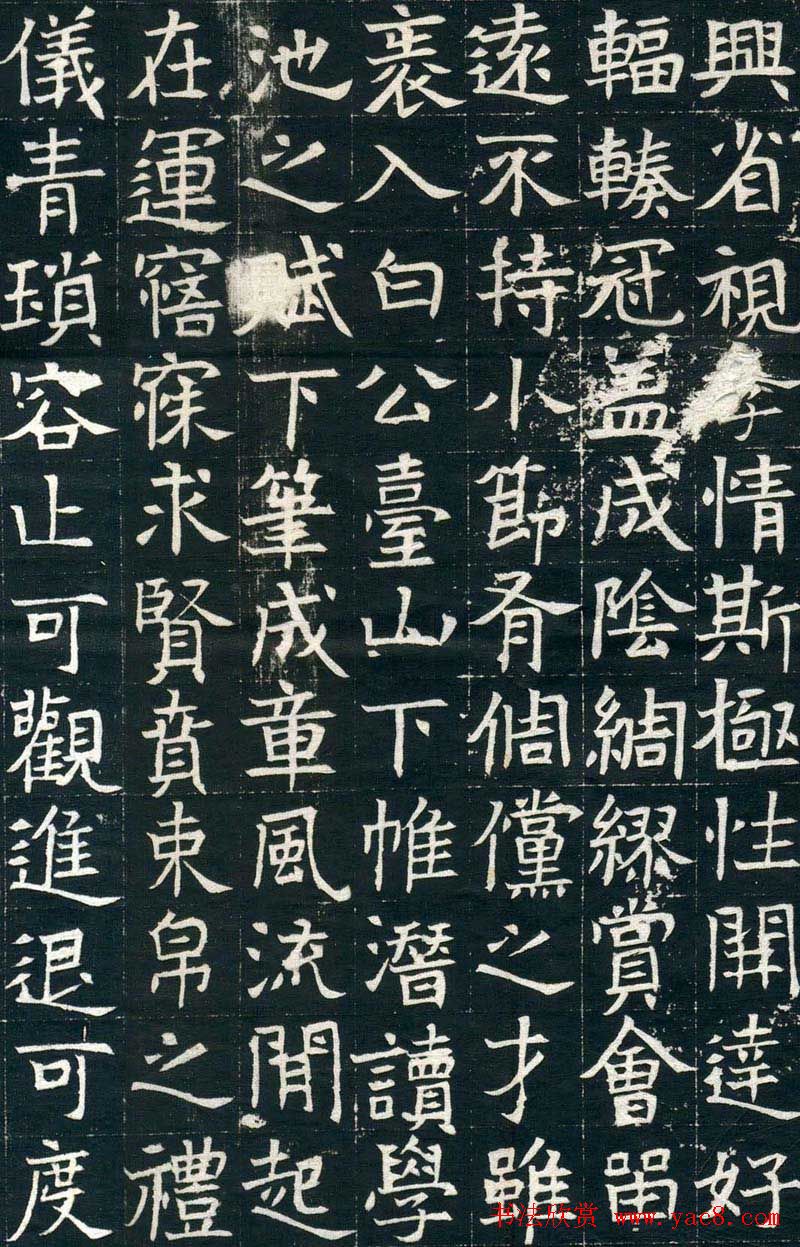 興省視孝情斯極性開達好
輻輳冠盖成陰綢繆賞會留
遠不持小節有倜儻之才雖
袠入白公臺山下帷潛讀學
池之賦下筆成章風流閒起
在運窹寐求賢賁束帛之禮
儀青瑣容止可觀進退可度
书法欣赏 www.yac8.com